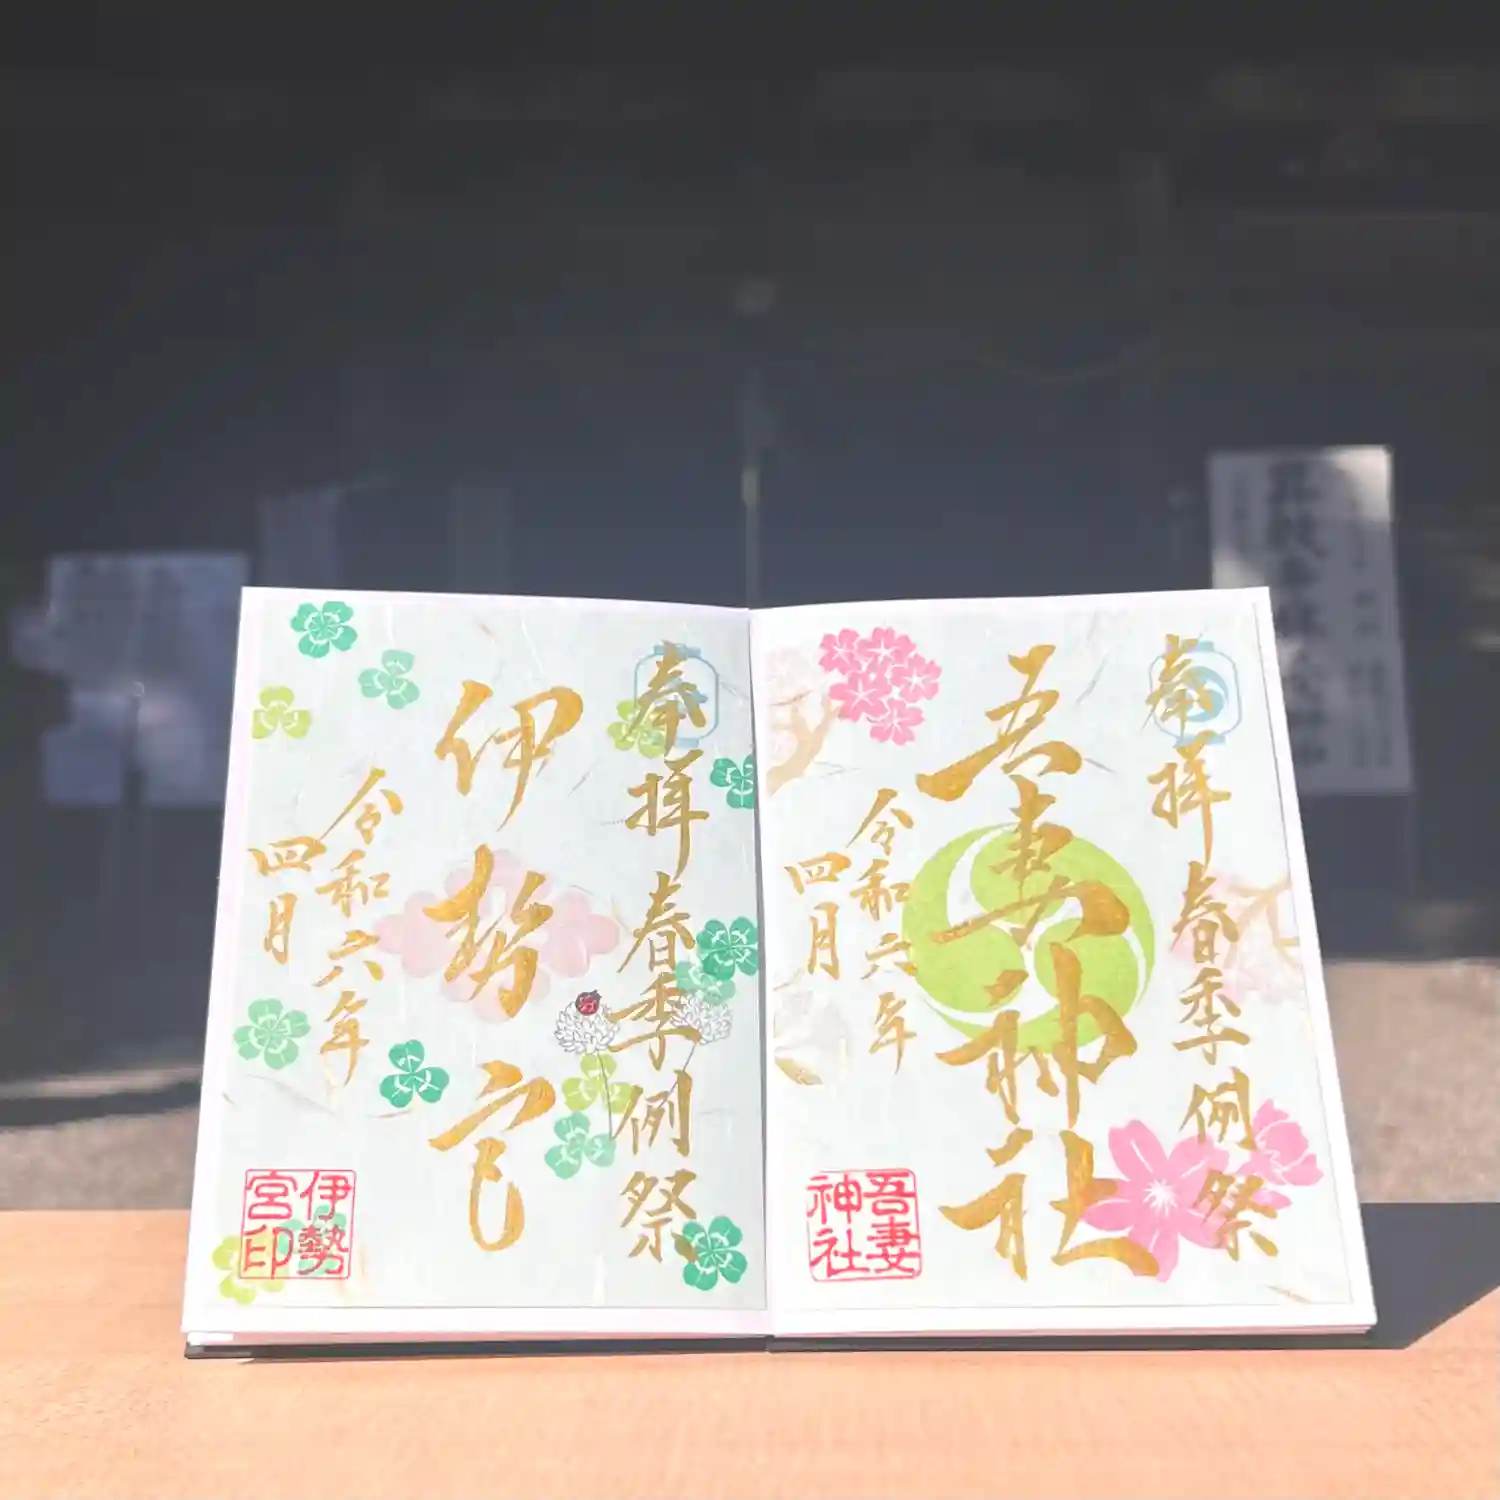 奉拝 春季例祭
吾妻神社
令和六年
四月
吾妻
神社
奉拝 春季例祭
伊勢宮
令和六年
四月
伊勢
宮印